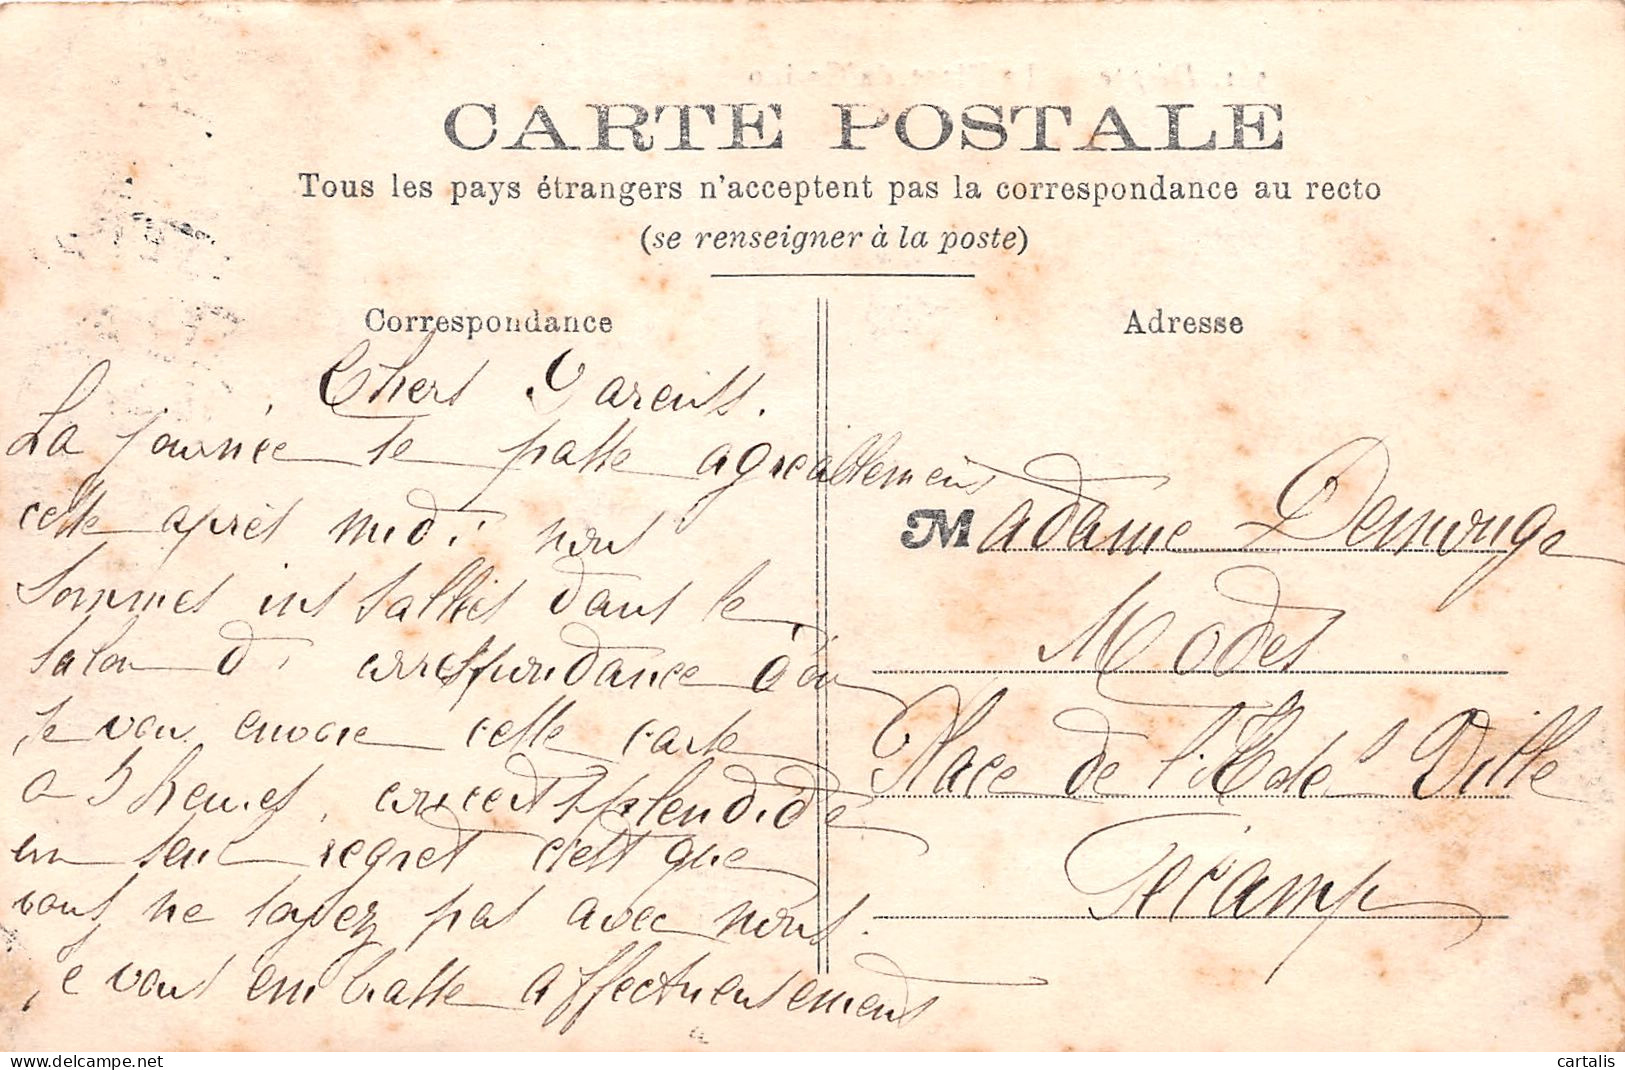 CARTE POSTALE
Tous les pays étrangers n'acceptent pas la correspondance au recto
(se renseigner à la poste)
Correspondance
Chers Parents.
La journée se passe agréablement
cette après midi nous
sommes installés dans le
salon de correspondance d'où
je vous envoie cette carte
a 5 heures, concert splendide
un seul regret c'est que
vous ne soyez pas avec nous.
je vous embrasse affectueusement
Adresse
Madame Demouge
Modes
Place de l'Hotel Ville
Fécamp
cartalis